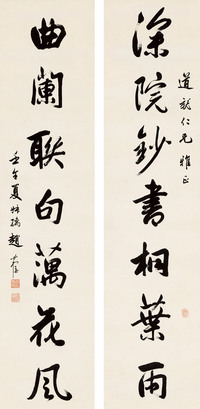 深院鈔書桐葉雨
道彰仁兄雅正
曲闌聯句藕花風
壬午夏 趙